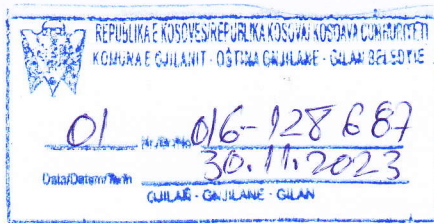 REPUBLIKA E KOSOVËS/REPUBLIKA KOSOVA/KOSOVA CUMHURIYETI
KOMUNA E GJILANIT - OPŠTINA GNJILANE - GILAN BELEDIYE
01 Nr./Br./No 016-128687
Data/Datum/Tarih 30.11.2023
GJILAN - GNJILANE - GILAN